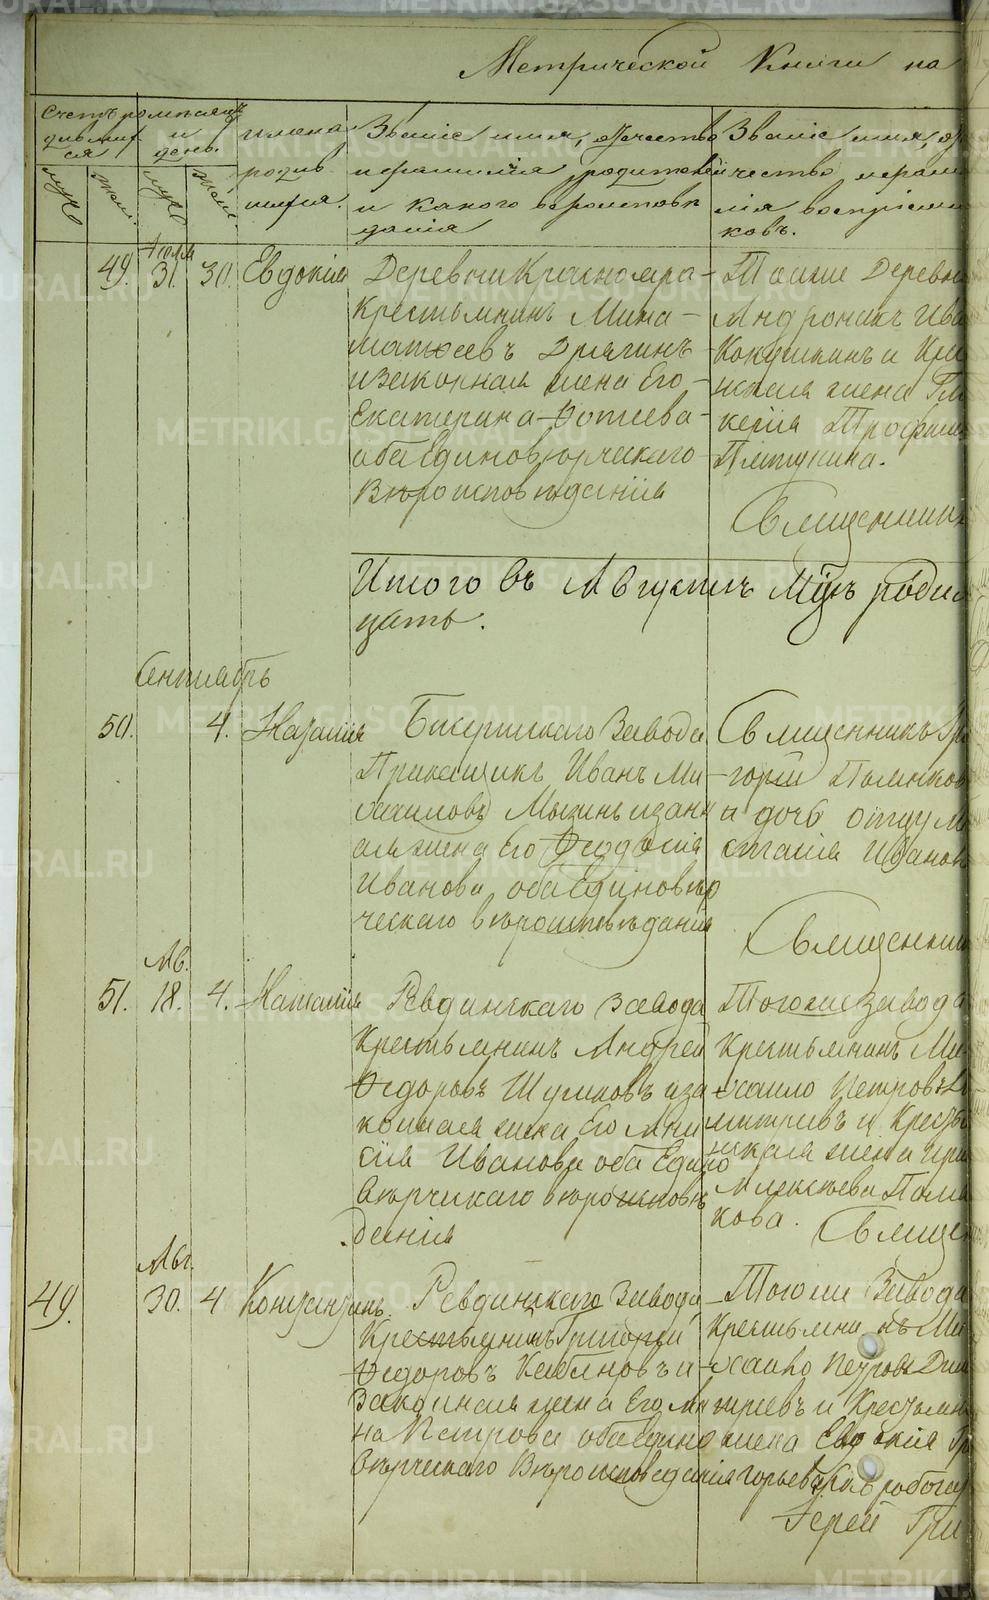 Метрической Книги на
Счетъ родившихся
мѣсяцъ и день.
имена родившихся.
Званіе имя, отчество и фамилія родителей и какого вѣроисповѣданія
Званіе имя, отчество и фамилія воспріемниковъ.
муж. жен. муж. жен.
Іюля
49. 31. 30. Евдокія
Деревни Краснояра
Крестьянинъ Мина
Матѳеевъ Дрягинъ
и законная жена Его
Екатерина Фотіева
оба Единовѣрческаго
Вѣроисповѣданія
Тойже Деревни
Андроникъ Ива
Кокушкинъ и Кре
жена Гли
керія Трофим
Пятунина.
Священник
Итого въ Августѣ М-цѣ родил
цать.
Сентябрь
50. 4. Наталія
Бисертскаго Завода
Прикащикъ Иванъ Ми
хаиловъ Мызинъ и закон
ая жена Его Ѳеодосія
Иванова, оба Единовѣр
ческаго вѣроисповѣданія
Священникъ Гри
горій Поляков
и дочь отцу Ан
стасія Иванов
Священник
Ав.
51. 18. 4. Наталія
Ревдинскаго Завода
Крестьянинъ Андрей
Ѳедоровъ Шумковъ и за
конная жена Его Ани
сія Иванова оба Едино
вѣрческаго вѣроисповѣ
данія
Тогоже Завода
Крестьянинъ Ми
хаило Петровъ Д
митріевъ и Кресть
нская жена Ири
Алексѣева Пола
кова.
Священ
Авг.
49. 30. 4 Константинъ.
Ревдинскаго Завода,
Крестьянинъ Григорій
Ѳедоровъ Кабановъ и
Законная жена Его Ан
на Петрова оба Едино
вѣрческаго Вѣроисповеданія
Тогоже Завода
Крестьянинъ Ми
хайло Петровъ Дми
тріевъ и Крестьян
жена Евдокія Гр
горьева
Іерей Гри
METRIKI.GASO-URAL.RU